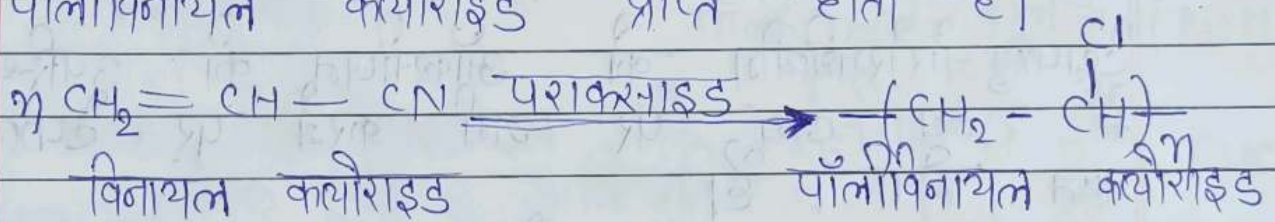 पॉलीविनायल क्योराइड प्राप्त होता है।
Cl
n CH₂ = CH — CN पराक्साइड → —(CH₂ - CH)—n
विनायल क्योराइड पॉलीविनायल क्योराइड